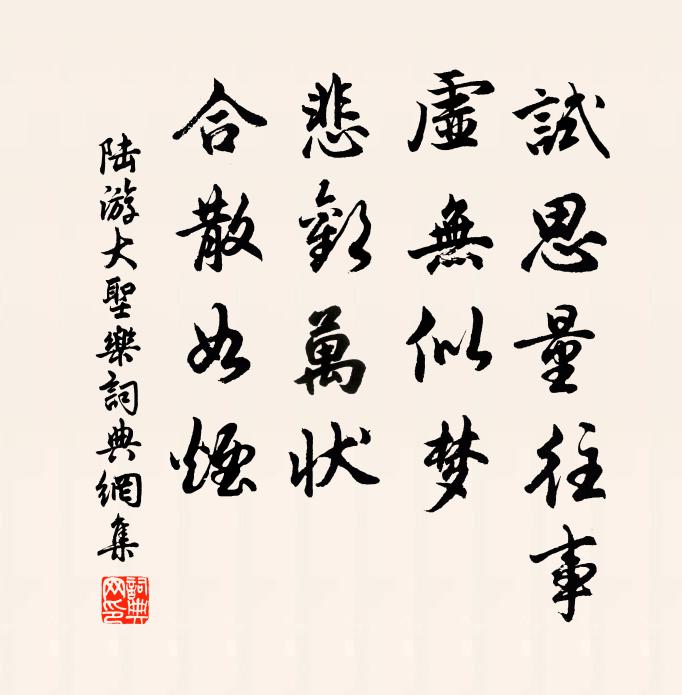 試思量往事
虛無似梦
悲歡萬状
合散如煙
陸游大聖樂詞典網集
詞典網印